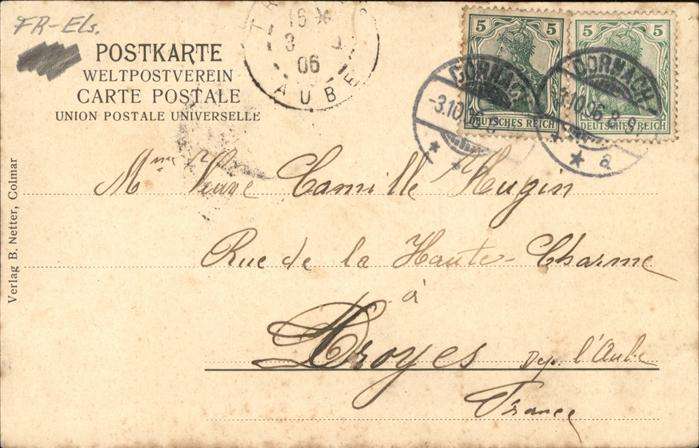 FR-Els.
POSTKARTE
WELTPOSTVEREIN
CARTE POSTALE
UNION POSTALE UNIVERSELLE
AUBE
06
5 5
DEUTSCHES REICH
5 5
DEUTSCHES REICH
DORNACH
-3.10
DORNACH
.10.06. 8-9
* a
Mme Veuve Camille Hugin
Rue de la Haute-Charme
à
Troyes Dep. l'Aube
France
Verlag B. Netter, Colmar